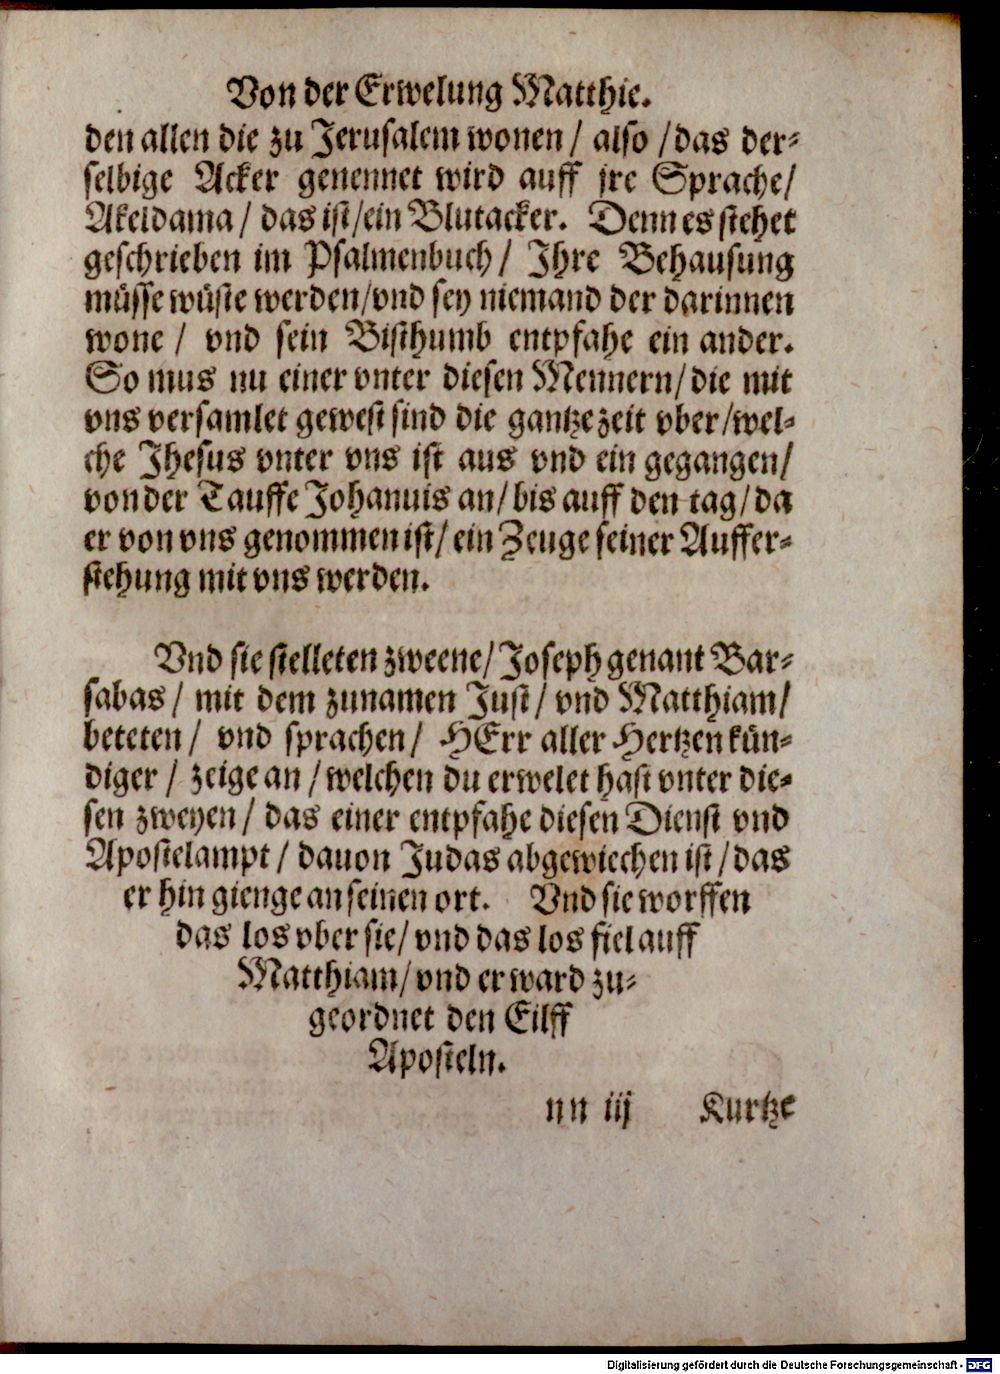 Von der Erwelung Matthie.
den allen die zu Jerusalem wonen / also / das der⸗
selbige Acker genennet wird auff jre Sprache /
Akeldama / das ist / ein Blutacker. Denn es stehet
geschrieben im Psalmenbuch / Ihre Behausung
müsse wüste werden / vnd sey niemand der darinnen
wone / vnd sein Bisthumb entpfahe ein ander.
So mus nu einer vnter diesen Mennern / die mit
vns versamlet gewest sind die gantze zeit vber / wel⸗
che Jhesus vnter vns ist aus vnd ein gegangen /
von der Tauffe Johannis an / bis auff den tag / da
er von vns genommen ist / ein Zeuge seiner Auffer⸗
stehung mit vns werden.
Vnd sie stelleten zweene / Joseph genant Bar⸗
sabas / mit dem zunamen Just / vnd Matthiam /
beteten / vnd sprachen / HErr aller Hertzen kün⸗
diger / zeige an / welchen du erwelet hast vnter die⸗
sen zweyen / das einer entpfahe diesen Dienst vnd
Apostelampt / dauon Judas abgewiechen ist / das
er hin gienge an seinen ort. Vnd sie worffen
das los vber sie / vnd das los fiel auff
Matthiam / vnd er ward zu⸗
geordnet den Eilff
Aposteln.
nn iij Kurtze
Digitalisierung gefördert durch die Deutsche Forschungsgemeinschaft - DFG